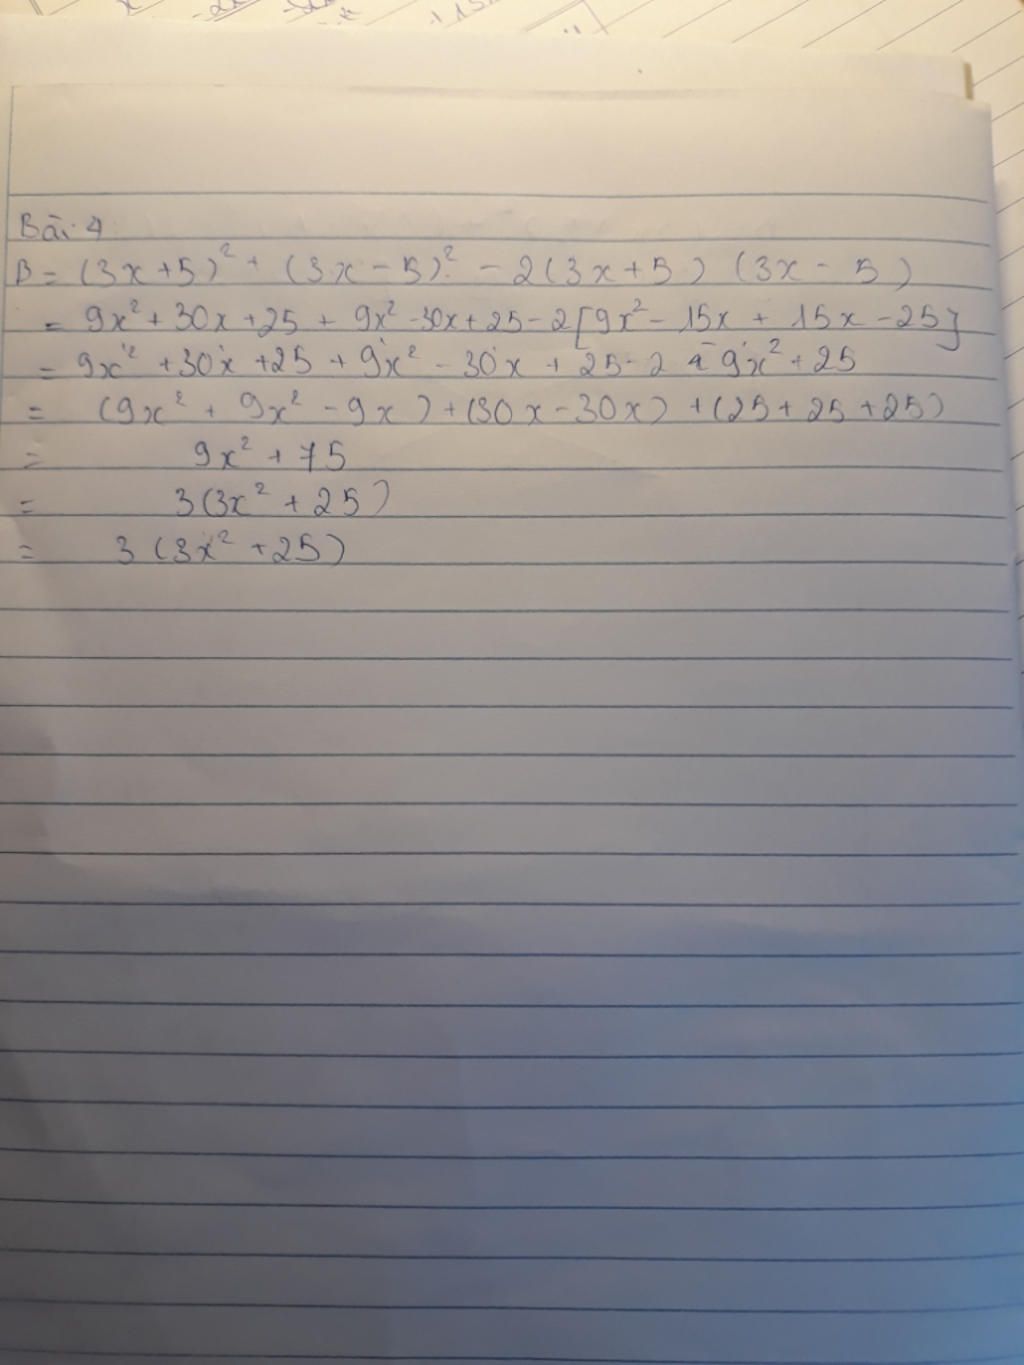 Bài 4
B = (3x+5)² + (3x - 5)² - 2(3x+5) (3x - 5)
= 9x² + 30x + 25 + 9x² - 30x + 25 - 2[9x² - 15x + 15x - 25]
= 9x² + 30x + 25 + 9x² - 30x + 25 - 2 - 9x² + 25
= (9x² + 9x² - 9x) + (30x - 30x) + (25 + 25 + 25)
= 9x² + 75
= 3(3x² + 25)
= 3(3x² + 25)